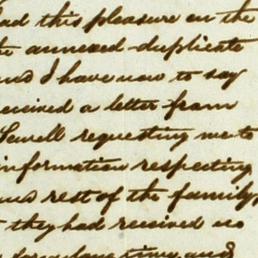 had this pleasure on the
the annexed duplicate
and I have now to say
received a letter from
Sewell requesting me to
information respecting
and rest of the family,
they had received no
for some time, and